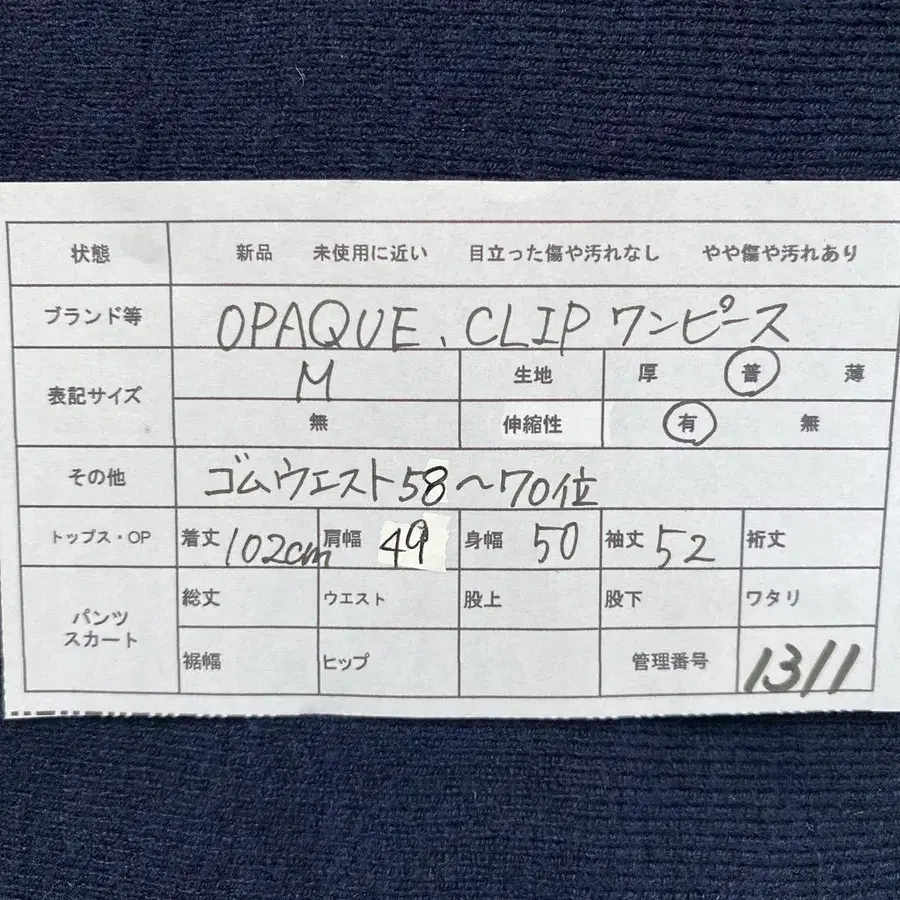 状態 新品 未使用に近い 目立った傷や汚れなし やや傷や汚れあり
ブランド等 OPAQUE.CLIP ワンピース
表記サイズ M 生地 厚 普 薄
無 伸縮性 有 無
その他 ゴムウエスト58〜70位
トップス・OP 着丈 102cm 肩幅 49 身幅 50 袖丈 52 裄丈
パンツ スカート 総丈 ウエスト 股上 股下 ワタリ
裾幅 ヒップ 管理番号 1311